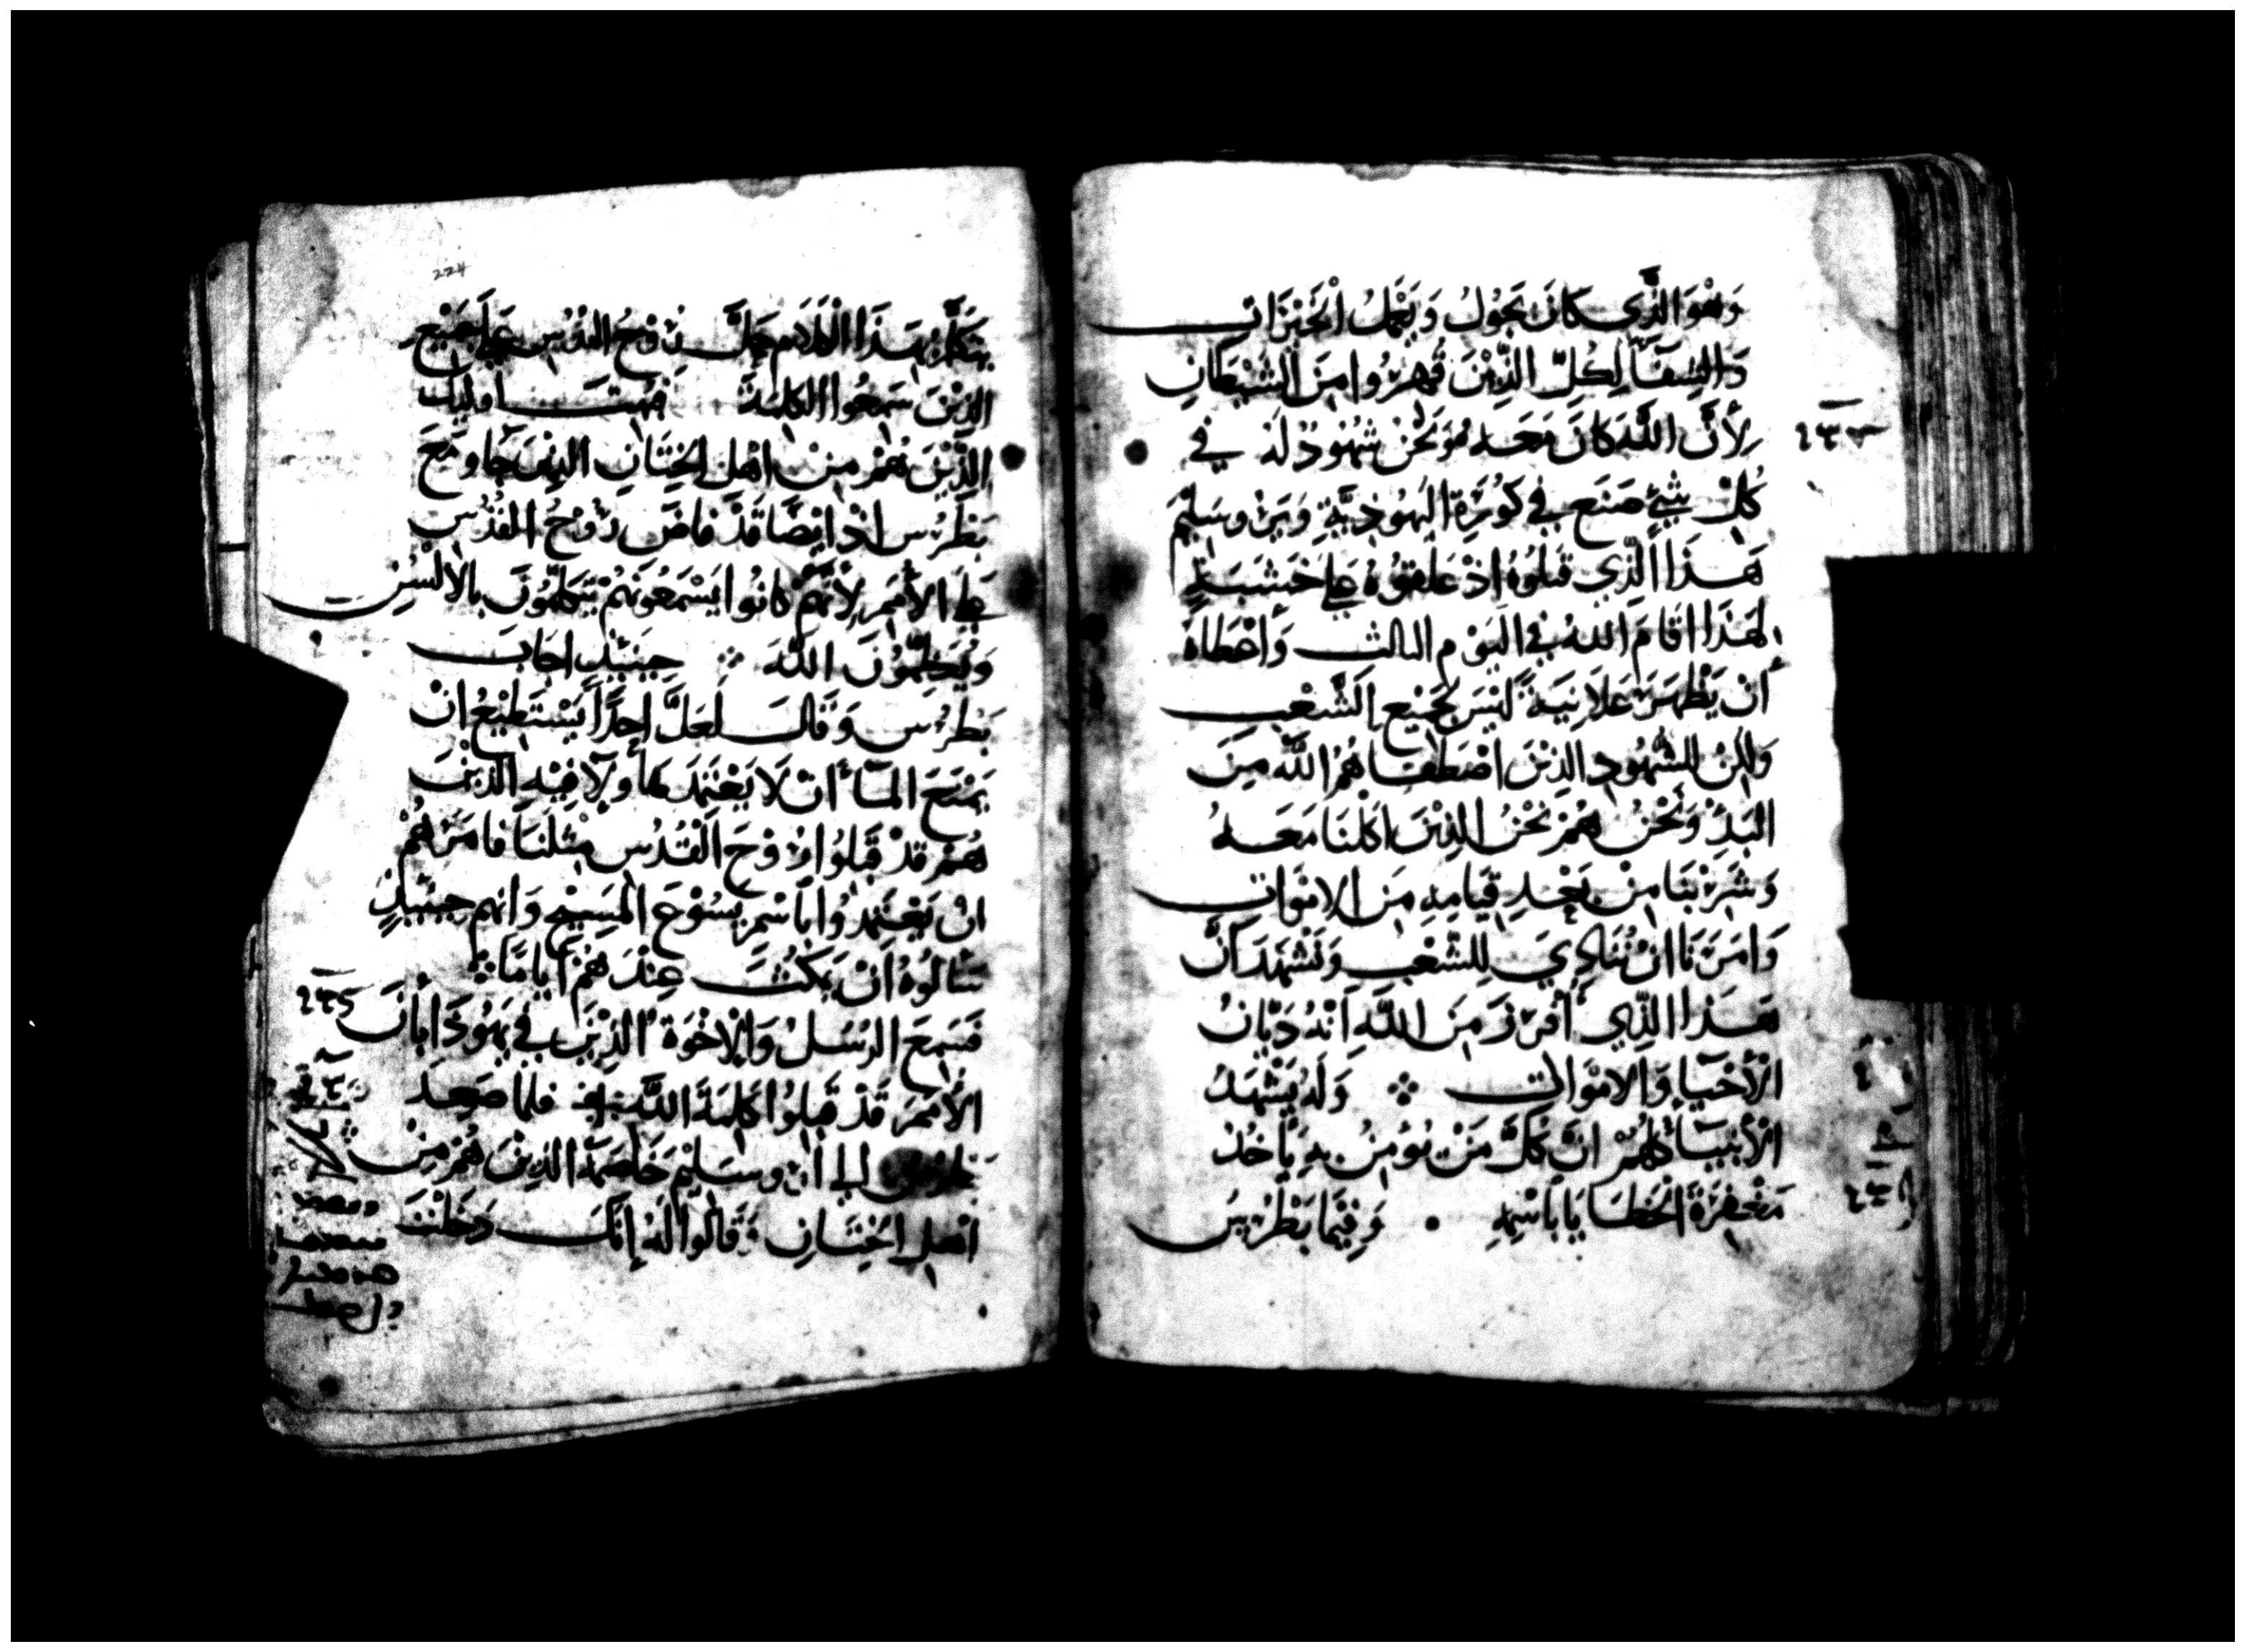 وَهُوَ الَّذِي كَانَ يَجُولُ وَيَعْمَلُ الْخَيْرَاتِ
وَالشِفَآ لِكُلِّ الذِّيْنَ قُهِرُوا مِنَ الشَيْطَانِ
لِأَنَّ اللَّهَ كَانَ مَعَهُ وَنَحْنُ شُهُودٌ لَهُ فِي
كُلِّ شَيْءٍ صَنَعَ فِي كُورَةِ اليَهُودِيَّةِ وَيَرُوسَلِيْمَ
هَذَا الَّذِي قَتَلُوهُ اذْ عَلَقُوهُ عَلَى خَشَبَةٍ
لِهَذَا اقَامَ اللَّهُ فِي اليَوْمِ الثالث وَأَعْطَاهُ
أَنْ يَظْهَرَ عَلَانِيَةً لَيْسَ لِجَمِيْعِ الَشَّعْبِ
وَلكِنْ لِلشُّهُودِ الذِيْنَ اصْطَفَاهُمُ اللَّهُ مِنَ
البَدِءْ وَنَحْنُ هُمْ نَحْنُ الذِيْنَ اكَلْنَا مَعَهُ
وَشَرِبْنَا مِنْ بَعْدِ قِيَامِهِ مِنَ الامْوَاتِ
وَامَرَنَا انْ نُنَادِيَ لِلشَّعْبِ وَنَشْهَدَ انَّ
هَذَا الَّذِي أُفْرِزَ مِنَ اللَّهِ أَنَّهُ دَيَّانُ
الْأَحْيَا وَالامْوَاتِ ⁘ وَلَهُ يَشْهَدُ
الْأَنْبِيَآءُ كُلُّهُمْ انَّ كُلَّ مَنْ يُؤمِنُ بِهِ يَاخُذُ
مَغْفِرَةَ الْخَطَايَا بِاسْمِهِ • وَفِيْمَا بُطْرُسُ
224
يَتَكَلَّمُ بِهَذَا الْكَلَامِ حَلَّ رُوْحُ القُدُسِ عَلَى جَمِيْعِ
الذِيْنَ سَمِعُوا الكَلِمَةَ فَبُهِتَ اوليك
الذِّيْنَ هُمْ مِنْ اهْلِ الْخِتَانِ الذِينَ جَآو مَعَ
بُطْرُس اذْ ايْضًا قَدْ فَاضَ رُوْحُ القُدُسِ
عَلَى الأُمَمِ لِأَنَّهُمْ كَانُوا يَسْمَعُونَهُمْ يَتَكَلَّمُونَ بِالأَلْسُنِ
وَيُعَظِّمُونَ اللَّهَ ⁘ حِيْنَيِّدٍ اجَابَ
بُطْرُس وَقَالَ لَعَلَّ احَدًا يَسْتَطِيْعُ انْ
يَمْنَعَ المَآءَ انْ لَا يَعْتَمِدَ هَأُولَآ فِيْهِ الذِيْنَ
هُمْ قَدْ قَبِلُوا رُوْحَ الْقُدُسِ مِثْلَنَا فَامَرَهُمْ
انْ يَعْتَمِدُوا بِاسْمِ يَسُوْعَ المَسِيْحِ وَانهم حِيْنَيِّدٍ
سَالُوهُ انْ يَمْكُثَ عِنْدَهُمْ أَيَامًا⁘
فَسَمِعَ الرُسُلُ وَالإِخْوَةُ الذِيْنَ فِي يَهُودَا بِأَنَّ
الأُمَمَ قَدْ قَبِلُوا كَلِمَةَ اللَّهِ فلما صَعِدَ
بطرس الى اورسَلِيْمَ خَاصَمَهُ الذِيْنَ هُمْ مِنْ
اهْلِ الْخِتَانِ وَقَالُوا لَهُ إِنَّكَ دَخَلْتَ